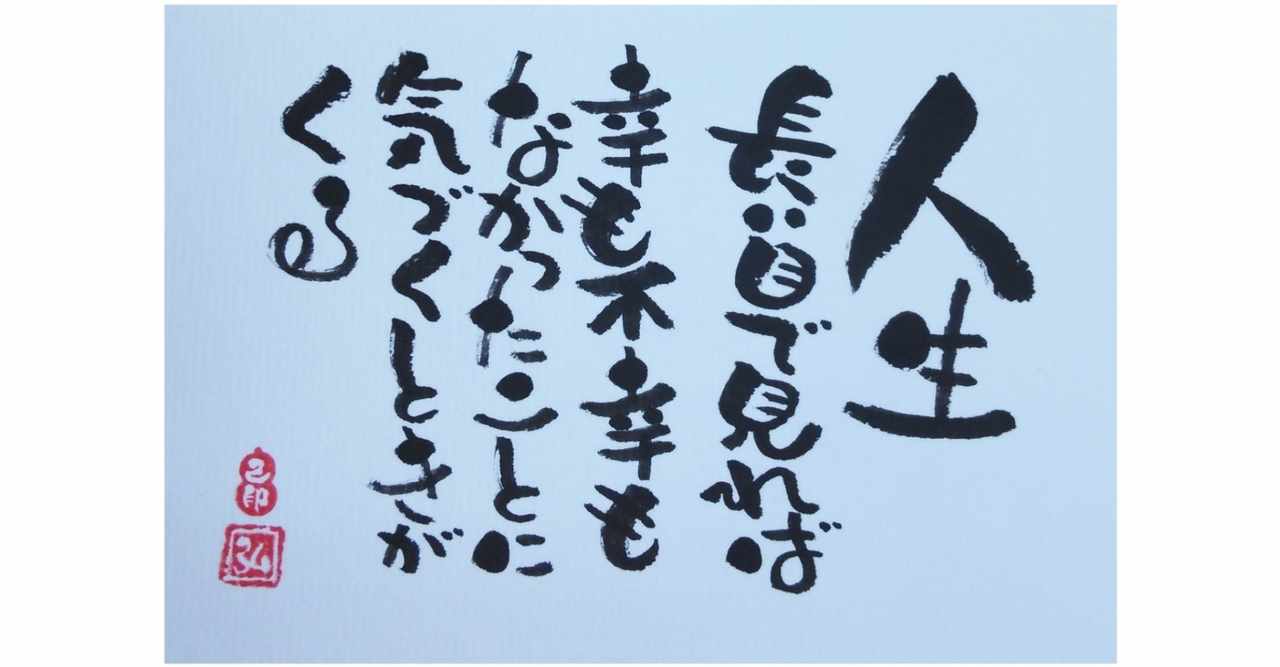 人生
長い目で見れば
幸も不幸も
なかったことに
気づくときが
くる
己卯
弘